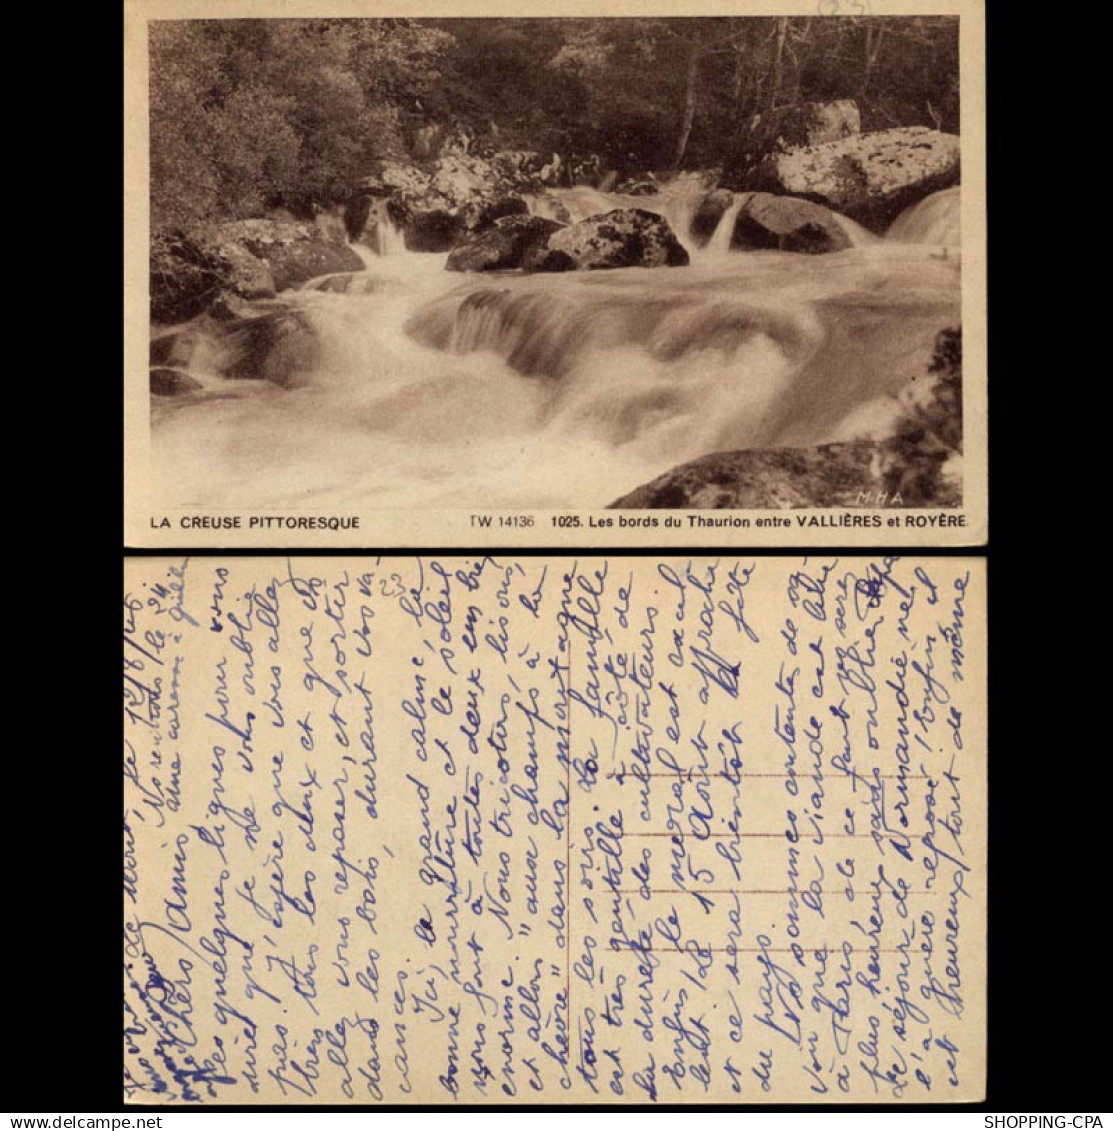 M.H.A
LA CREUSE PITTORESQUE TW 14136 1025. Les bords du Thaurion entre VALLIÈRES et ROYÈRE.
23
Nous rentrons le 24
Chers amis
quelques lignes pour vous
que je ne vous oublie
pas. J'espère que vous allez
très tous les deux et que
allez vous reposer, et sortir
dans les bois, durant vos va-
cances.
Ici, le grand calme, la
bonne nourriture et le soleil
nous font à toutes deux un bien
énorme. Nous tricotons, lisons,
et allons "aux champs à la
chèvre" dans la montagne
tous les soirs. La famille
est très gentille à côté de
la dureté des cultivateurs.
Enfin, le moral est excel-
lent. Le 15 Août approche
et ce sera bientôt fête
du pays.
Nous sommes contentes de sa-
voir que la viande est libre
à Paris de ce fait vous serez
plus heureux sans oublier Papa
Le séjour de Normandie ne
l'a guère reposé, enfin il
est heureux tout de même
SHOPPING-CPA